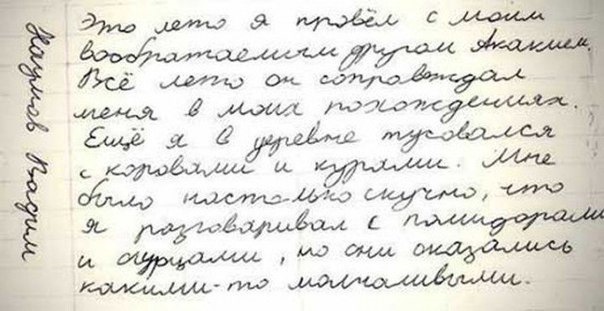 Наумов Вадим
Это лето я провёл с моим
воображаемым другом Акакием.
Всё лето он сопровождал
меня в моих похождениях.
Ещё я в деревне тусовался
с коровами и курами. Мне
было настолько скучно, что
я разговаривал с помидорами
и огурцами, но они оказались
какими-то молчаливыми.